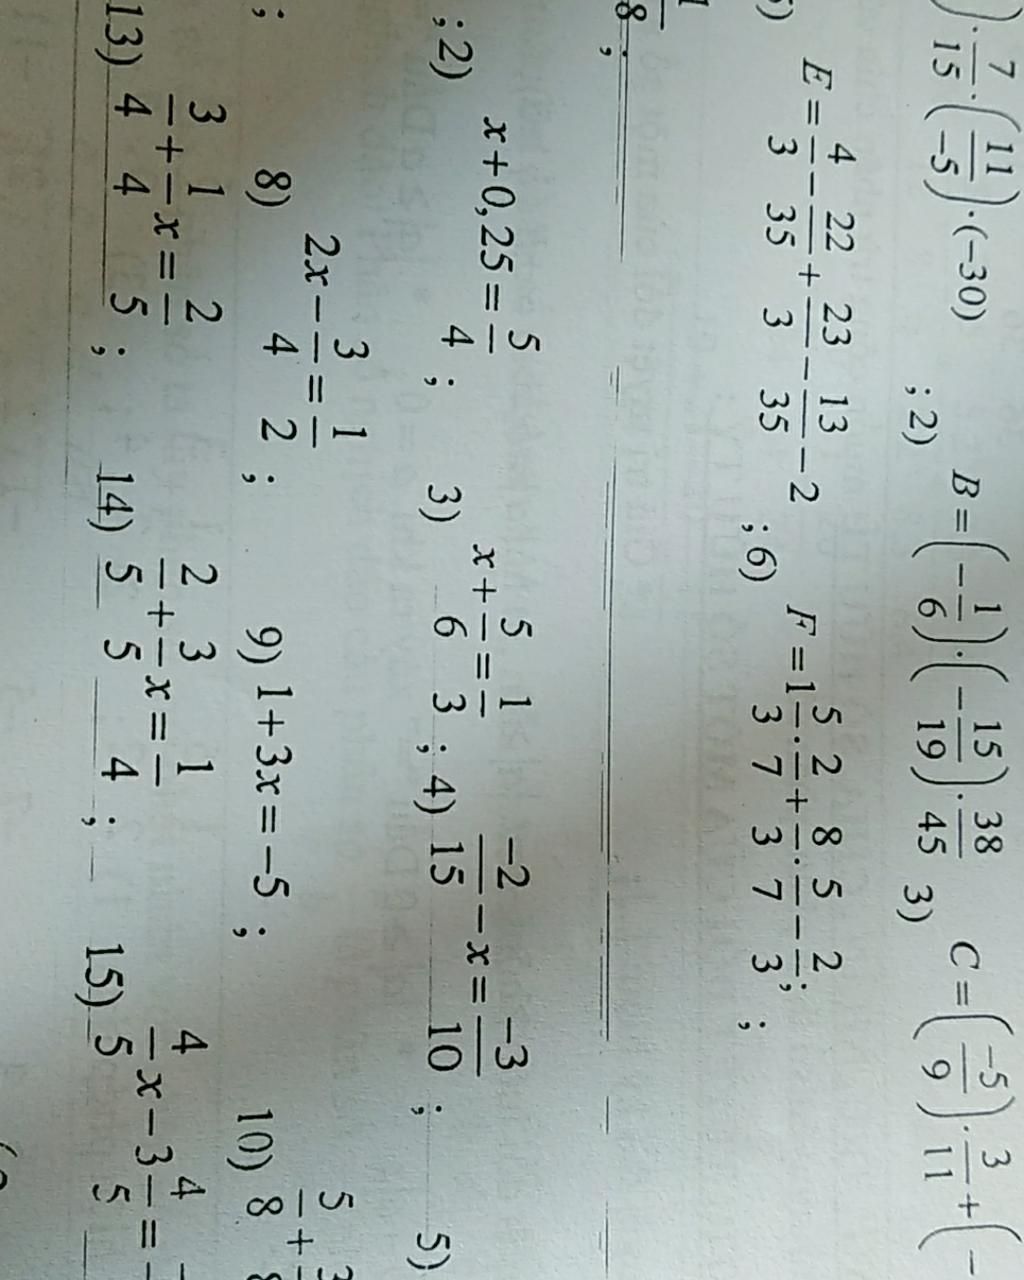 ) · 7/15 · (11/-5) · (-30) ; 2) B = (-1/6) · (-15/19) · 38/45 3) C = (-5/9) · 3/11 + (-
) E = 4/3 - 22/35 + 23/3 - 13/35 - 2 ; 6) F = 1 5/3 · 2/7 + 8/3 · 5/7 - 2/3; ;
1/8 ; 2) x + 0,25 = 5/4 ; 3) x + 5/6 = 1/3 ; 4) -2/15 - x = -3/10 ; 5)
; 8) 2x - 3/4 = 1/2 ; 9) 1 + 3x = -5 ; 10) 5/8 +
13) 3/4 + 1/4 x = 2/5 ; 14) 2/5 + 3/5 x = 1/4 ; 15) 4/5 x - 3 4/5 =